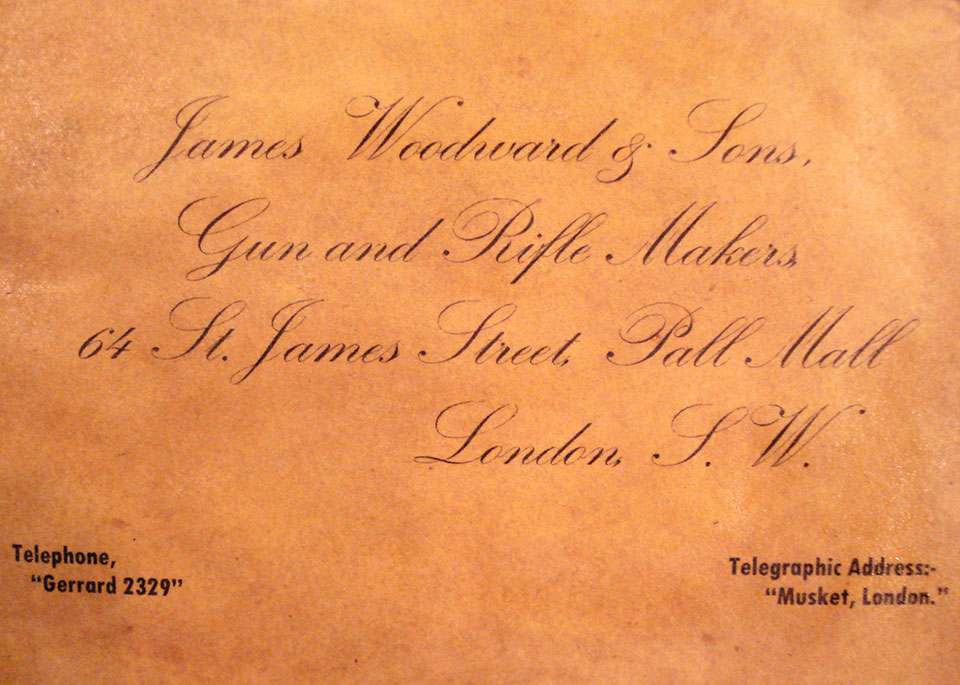 James Woodward & Sons,
Gun and Rifle Makers,
64 St. James Street, Pall Mall
London, S. W.
Telephone,
"Gerrard 2329"
Telegraphic Address:-
"Musket, London."